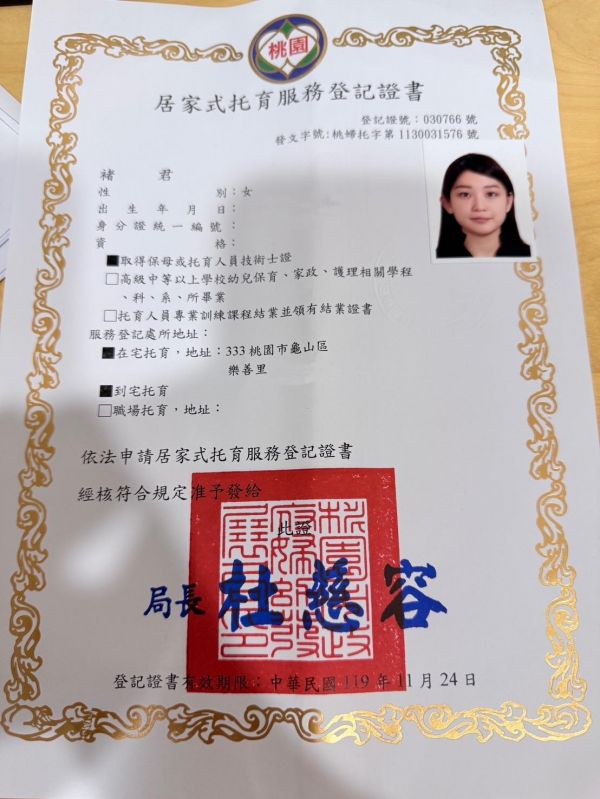 桃園
居家式托育服務登記證書
登記證號：030766 號
發文字號：桃婦托字第 1130031576 號
褚 君
性 別：女
出生年月日：
身分證統一編號：
資 格：
■取得保母或托育人員技術士證
□高級中等以上學校幼兒保育、家政、護理相關學程
、科、系、所畢業
□托育人員專業訓練課程結業並領有結業證書
服務登記處所地址：
■在宅托育，地址：333 桃園市龜山區
樂善里
■到宅托育
□職場托育，地址：
依法申請居家式托育服務登記證書
經核符合規定准予發給
此證
局長 杜慈容
登記證書有效期限：中華民國 119 年 11 月 24 日